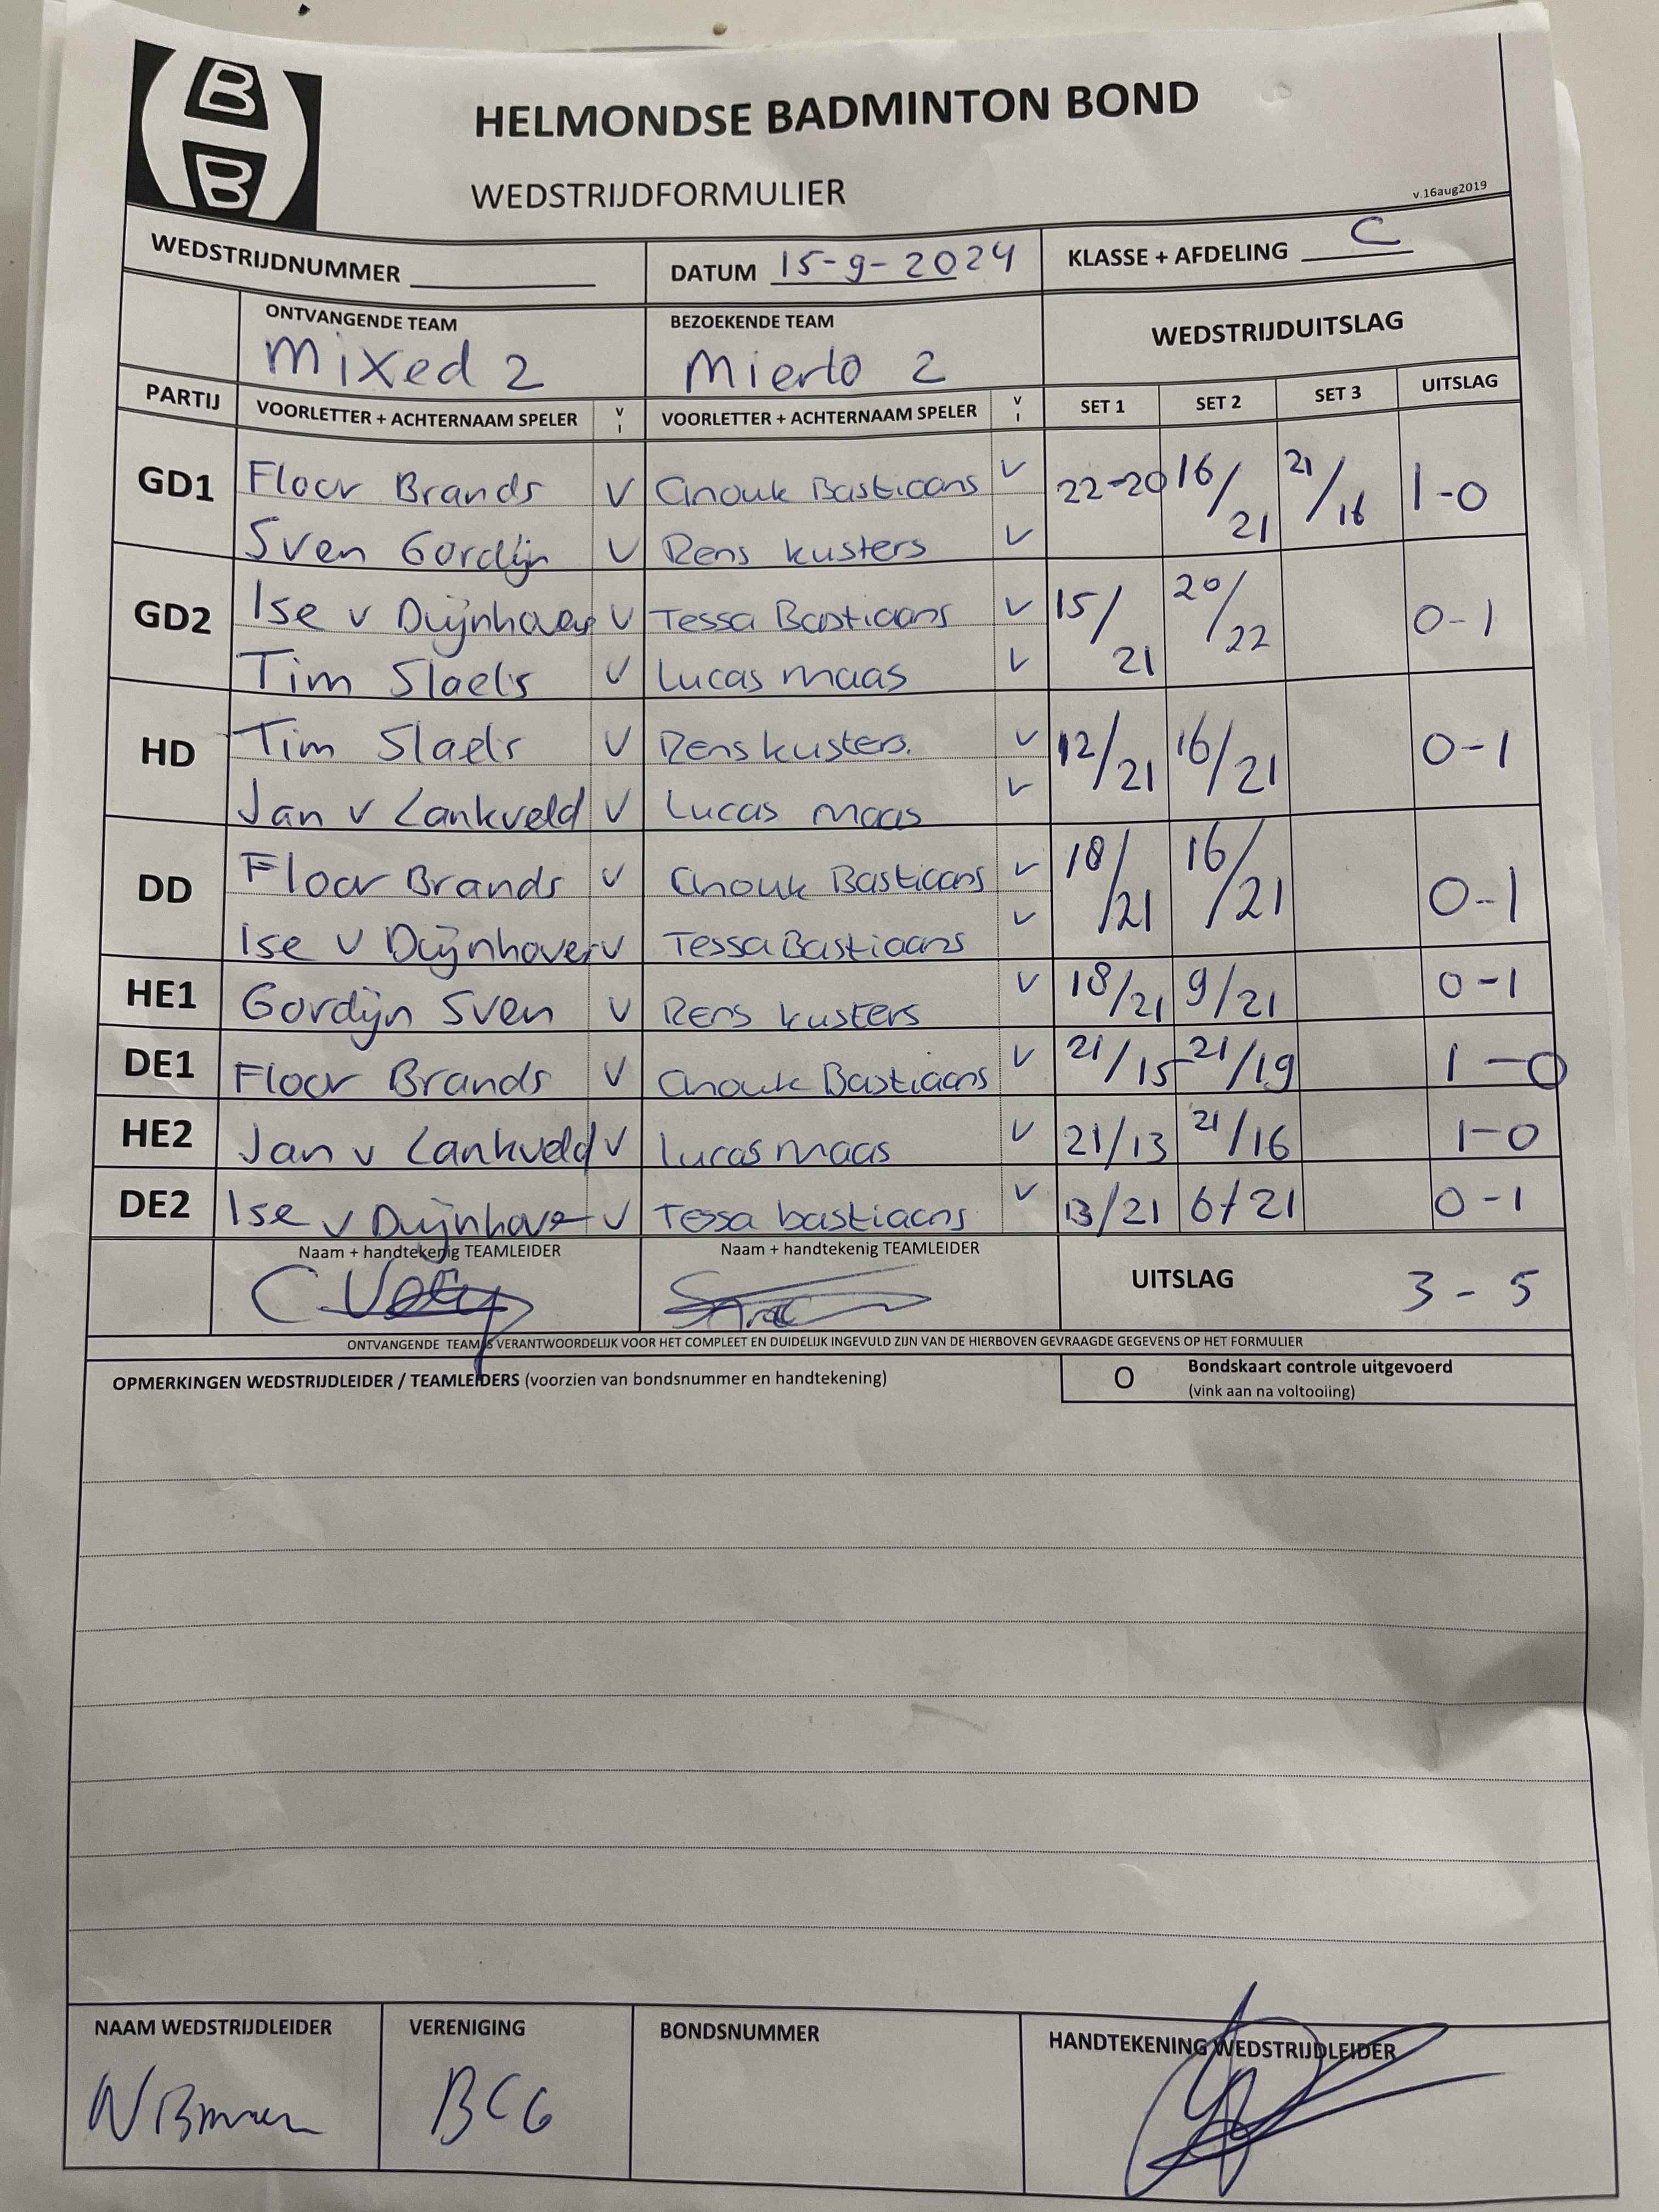 B
B
HELMONDSE BADMINTON BOND
WEDSTRIJDFORMULIER
v.16aug2019
WEDSTRIJDNUMMER DATUM 15-9-2024 KLASSE + AFDELING C
ONTVANGENDE TEAM BEZOEKENDE TEAM WEDSTRIJDUITSLAG
Mixed 2 Mierlo 2
PARTIJ VOORLETTER + ACHTERNAAM SPELER V I VOORLETTER + ACHTERNAAM SPELER V I SET 1 SET 2 SET 3 UITSLAG
GD1 Floor Brands V Anouk Bastiaans V 22-20 16/21 21/16 1-0
Sven Gordijn V Rens kusters V
GD2 Ise v Duijnhoven V Tessa Bastiaans V 15/21 20/22 0-1
Tim Slaels V Lucas maas V
HD Tim Slaels V Rens kusters. V 12/21 16/21 0-1
Jan v Lankveld V Lucas maas V
DD Floor Brands V Anouk Bastiaans V 18/21 16/21 0-1
Ise v Duijnhoven V Tessa Bastiaans V
HE1 Gordijn Sven V Rens kusters V 18/21 9/21 0-1
DE1 Floor Brands V Anouk Bastiaans V 21/15 21/19 1-0
HE2 Jan v Lankveld V Lucas maas V 21/13 21/16 1-0
DE2 Ise v Duijnhoven V Tessa bastiaans V 13/21 6/21 0-1
Naam + handtekenig TEAMLEIDER Naam + handtekenig TEAMLEIDER UITSLAG 3-5
ONTVANGENDE TEAM IS VERANTWOORDELIJK VOOR HET COMPLEET EN DUIDELIJK INGEVULD ZIJN VAN DE HIERBOVEN GEVRAAGDE GEGEVENS OP HET FORMULIER
OPMERKINGEN WEDSTRIJDLEIDER / TEAMLEIDERS (voorzien van bondsnummer en handtekening) O Bondskaart controle uitgevoerd
(vink aan na voltooiing)
NAAM WEDSTRIJDLEIDER VERENIGING BONDSNUMMER HANDTEKENING WEDSTRIJDLEIDER
BCG